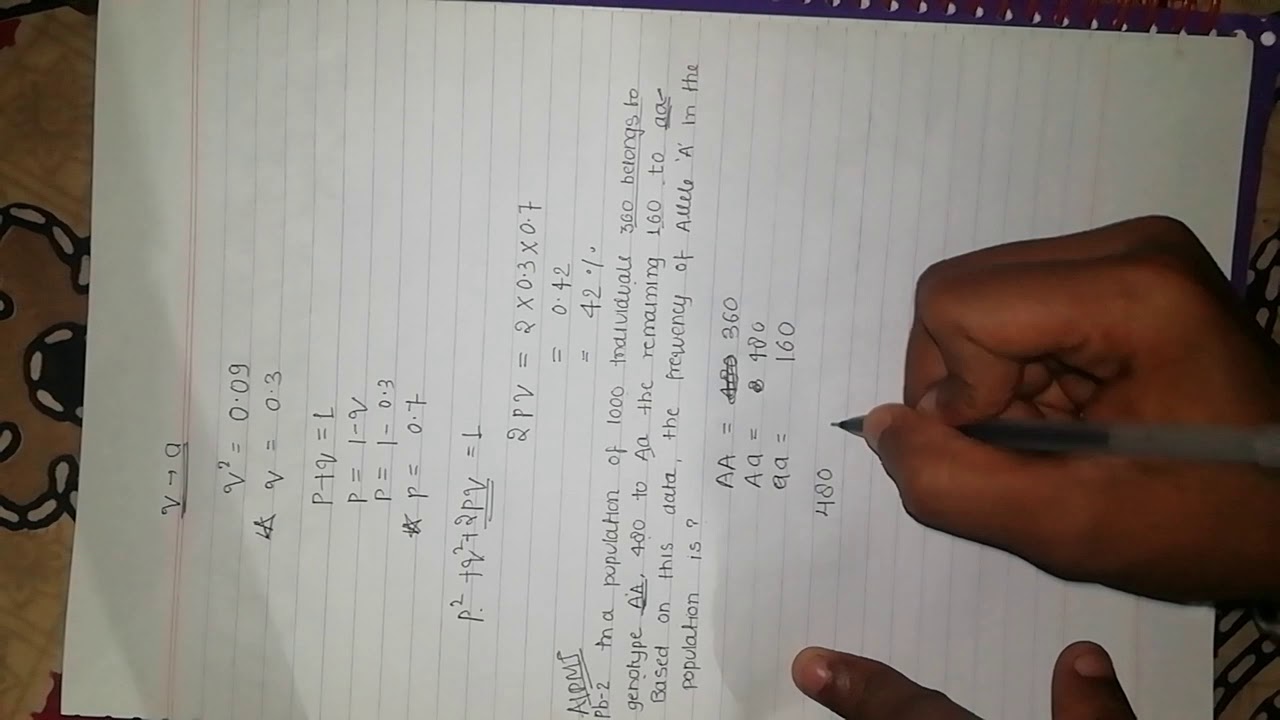 q → a
q² = 0.09
q = 0.3
P+q=1
P = 1-q
P = 1- 0.3
p = 0.7
p²+q²+2pq =1
2pq = 2 X 0.3 X 0.7
= 0.42
= 42 %
AIPMT
Pb-2 In a population of 1000 Individuals 360 belongs to
genotype AA, 480 to Aa the remaining 160 to aa
Based on this data, the frequency of Allele 'A' in the
population is?
AA = 360
Aa = 480
aa = 160
480